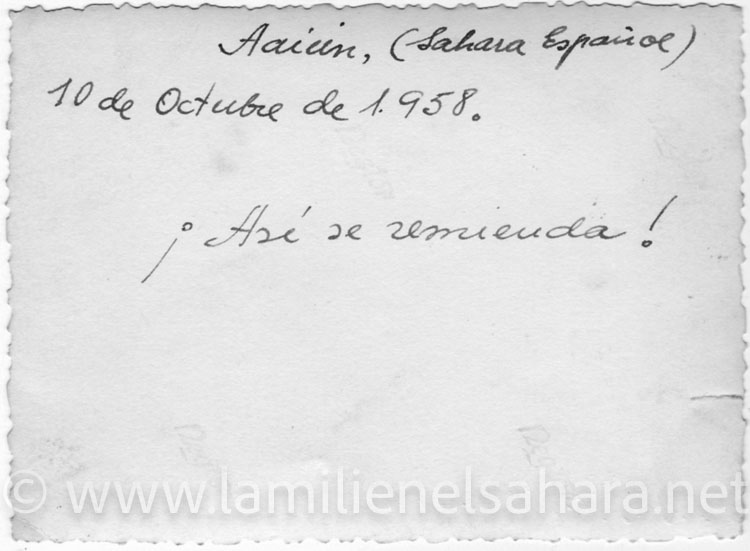 Aaiún, (Sahara Español)
10 de Octubre de 1.958.
¡Así se remienda!
© www.lamilienelsahara.net